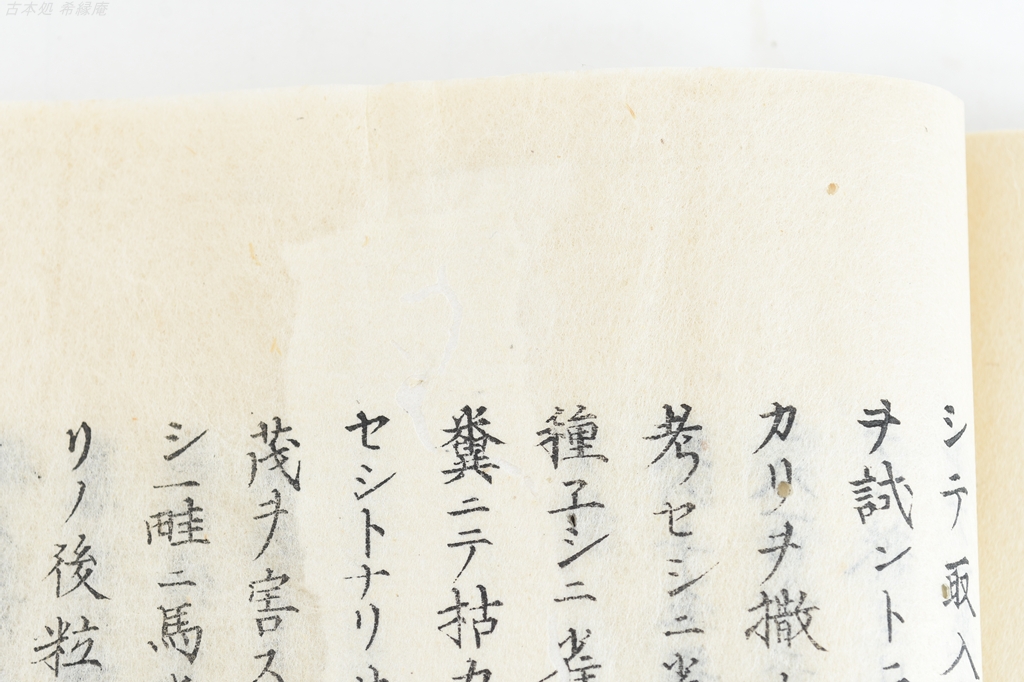 古本処 希縁庵
シテ取入
ヲ試ントニ
カリヲ撒
考セシニ
種子シニ
糞ニテ拈カ
セシトナリ
茂ヲ害ス
シ一畦ニ馬
リノ後粒